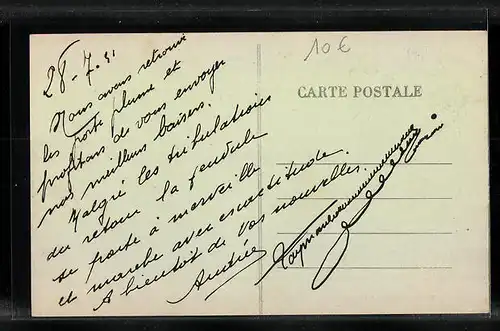 28-7.31
10€
CARTE POSTALE
Nous avons retrouvé
les porte plume et
profitons de vous envoyer
nos meilleurs baisers.
Malgré les tribulations
du retour la pendule
se porte à merveille
et marche avec exactitude.
A bientôt de vos nouvelles.
Andrée